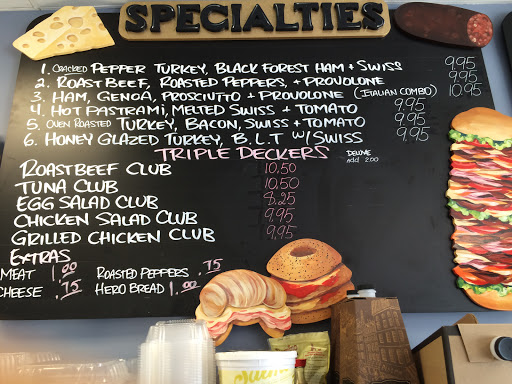 SPECIALTIES
1. CRACKED PEPPER TURKEY, BLACK FOREST HAM + SWISS 9.95
2. ROAST BEEF, ROASTED PEPPERS, + PROVOLONE 9.95
3. HAM, GENOA, PROSCIUTTO + PROVOLONE (ITALIAN COMBO) 10.95
4. HOT PASTRAMI, MELTED SWISS + TOMATO 9.95
5. OVEN ROASTED TURKEY, BACON, SWISS + TOMATO 9.95
6. HONEY GLAZED TURKEY, B.L.T W/ SWISS 9.95
TRIPLE DECKERS DELUXE
add 2.00
ROASTBEEF CLUB 10.50
TUNA CLUB 10.50
EGG SALAD CLUB 8.25
CHICKEN SALAD CLUB 9.95
GRILLED CHICKEN CLUB 9.95
EXTRAS
MEAT 1.00 ROASTED PEPPERS .75
CHEESE .75 HERO BREAD 1.00